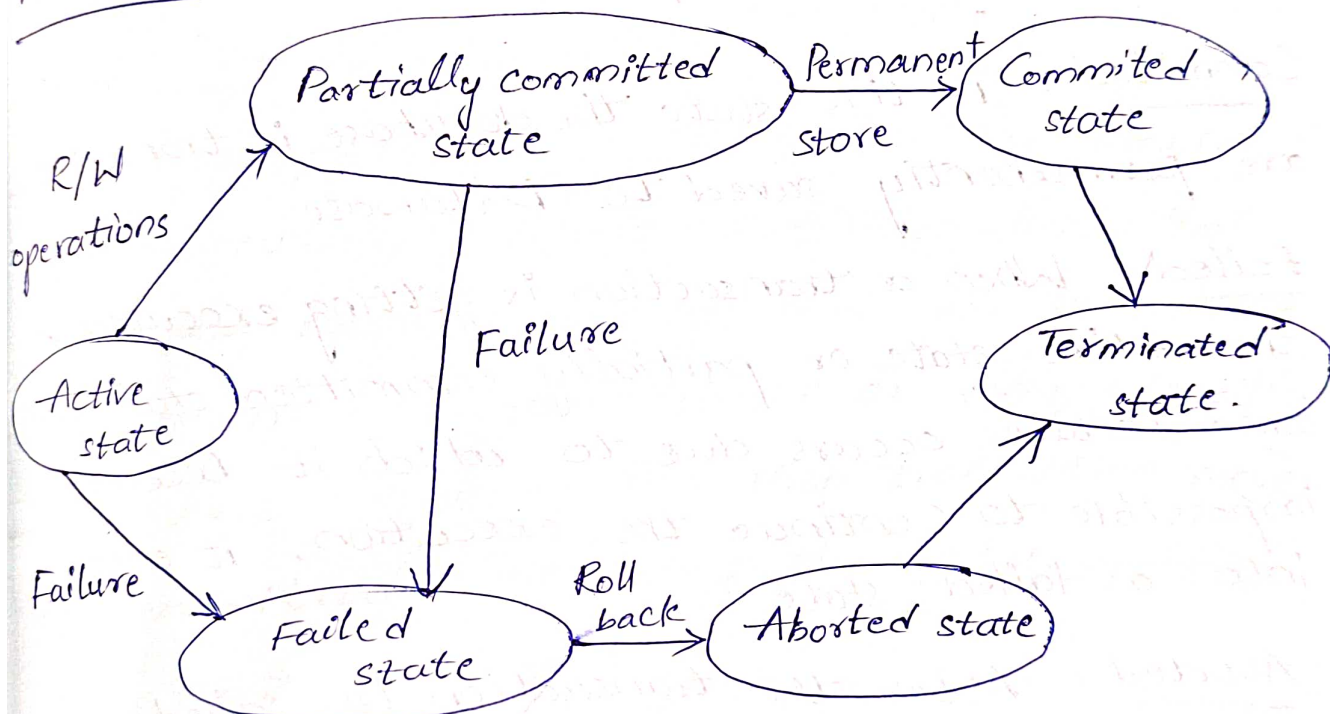 Partially committed
state
Permanent
store
Commited
state
R/W
operations
Failure
Active
state
Terminated
state.
Failure
Failed
state
Roll
back
Aborted state